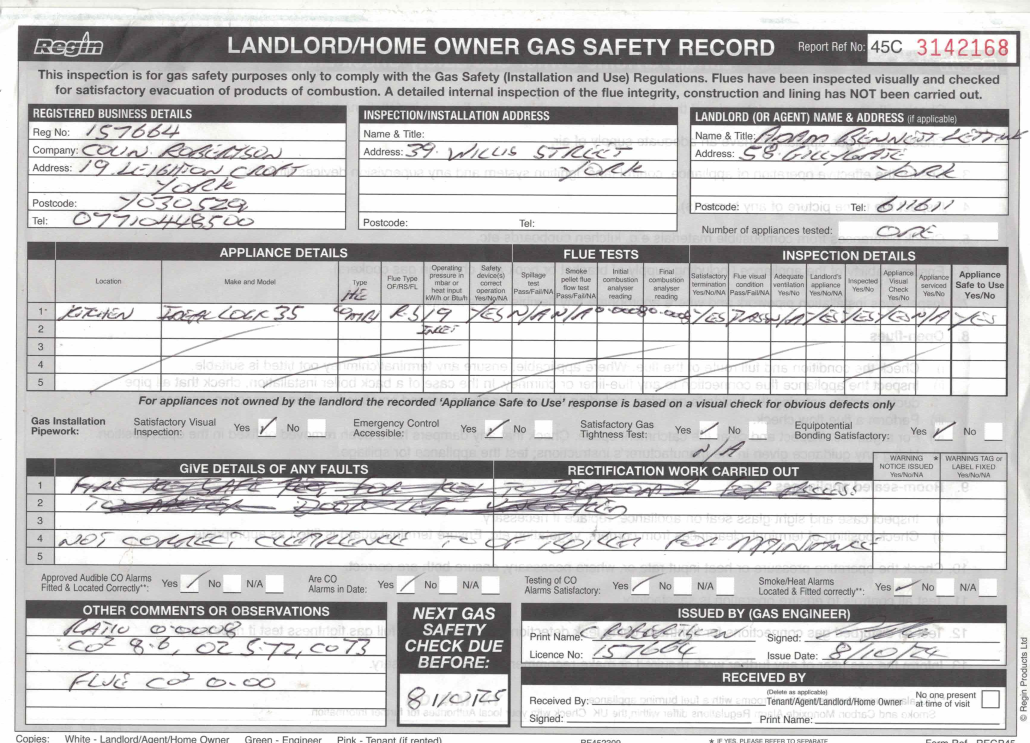 Regin
LANDLORD/HOME OWNER GAS SAFETY RECORD
Report Ref No: 45C 3142168
This inspection is for gas safety purposes only to comply with the Gas Safety (Installation and Use) Regulations. Flues have been inspected visually and checked
for satisfactory evacuation of products of combustion. A detailed internal inspection of the flue integrity, construction and lining has NOT been carried out.
REGISTERED BUSINESS DETAILS
Reg No: 157664
Company: COLIN ROBERTSON
Address: 19 LEIGHTON CROFT
YORK
Postcode: YO30 5ZQ
Tel: 07710448500
INSPECTION/INSTALLATION ADDRESS
Name & Title:
Address: 39 WILLIS STREET
YORK
Postcode: Tel:
LANDLORD (OR AGENT) NAME & ADDRESS (if applicable)
Name & Title: ADAM BENNETT
Address: 58 GILLYGATE
YORK
Postcode: Tel: 611611
Number of appliances tested: ONE
APPLIANCE DETAILS FLUE TESTS INSPECTION DETAILS
Location Make and Model Type Flue Type OF/RS/FL Operating pressure in mbar or heat input kW/h or Btu/h Safety device(s) correct operation Yes/No/NA Spillage test Pass/Fail/NA Smoke pellet flue flow test Pass/Fail/NA Initial combustion analyser reading Final combustion analyser reading Satisfactory termination Yes/No/NA Flue visual condition Pass/Fail/NA Adequate ventilation Yes/No Landlord's appliance Yes/No/NA Inspected Yes/No Appliance Visual Check Yes/No Appliance serviced Yes/No Appliance Safe to Use Yes/No
HE
1 KITCHEN IDEAL LOGIC 35 COMBI R-S 19 YES N/A N/A 0.0008 0.0008 YES PASS N/A YES YES YES N/A YES
2 INLET
3
4
5
For appliances not owned by the landlord the recorded 'Appliance Safe to Use' response is based on a visual check for obvious defects only
Gas Installation Pipework: Satisfactory Visual Inspection: Yes No Emergency Control Accessible: Yes No Satisfactory Gas Tightness Test: Yes No Equipotential Bonding Satisfactory: Yes No
N/A
GIVE DETAILS OF ANY FAULTS RECTIFICATION WORK CARRIED OUT WARNING NOTICE ISSUED Yes/No * WARNING TAG or LABEL FIXED Yes/No/NA
1
2
3
4 NOT CORRECT CLEARENCE TO OF BOILER FOR MAINTANCE
5
Approved Audible CO Alarms Fitted & Located Correctly**: Yes No N/A Are CO Alarms in Date: Yes No N/A Testing of CO Alarms Satisfactory: Yes No N/A Smoke/Heat Alarms Located & Fitted correctly**: Yes No N/A
OTHER COMMENTS OR OBSERVATIONS
RATIO 0.0008
CO2 8.6, O2 5.72, CO 73
FLUE CO2 0.00
NEXT GAS
SAFETY
CHECK DUE
BEFORE:
8/10/25
ISSUED BY (GAS ENGINEER)
Print Name: C ROBERTSON Signed:
Licence No: 157664 Issue Date: 8/10/24
RECEIVED BY
Received By: (Delete as applicable) Tenant/Agent/Landlord/Home Owner No one present at time of visit
Signed: Print Name:
© Regin Products Ltd
Copies: White - Landlord/Agent/Home Owner Green - Engineer Pink - Tenant (if rented) * IF YES, PLEASE REFER TO SEPARATE Form Ref. REGP45